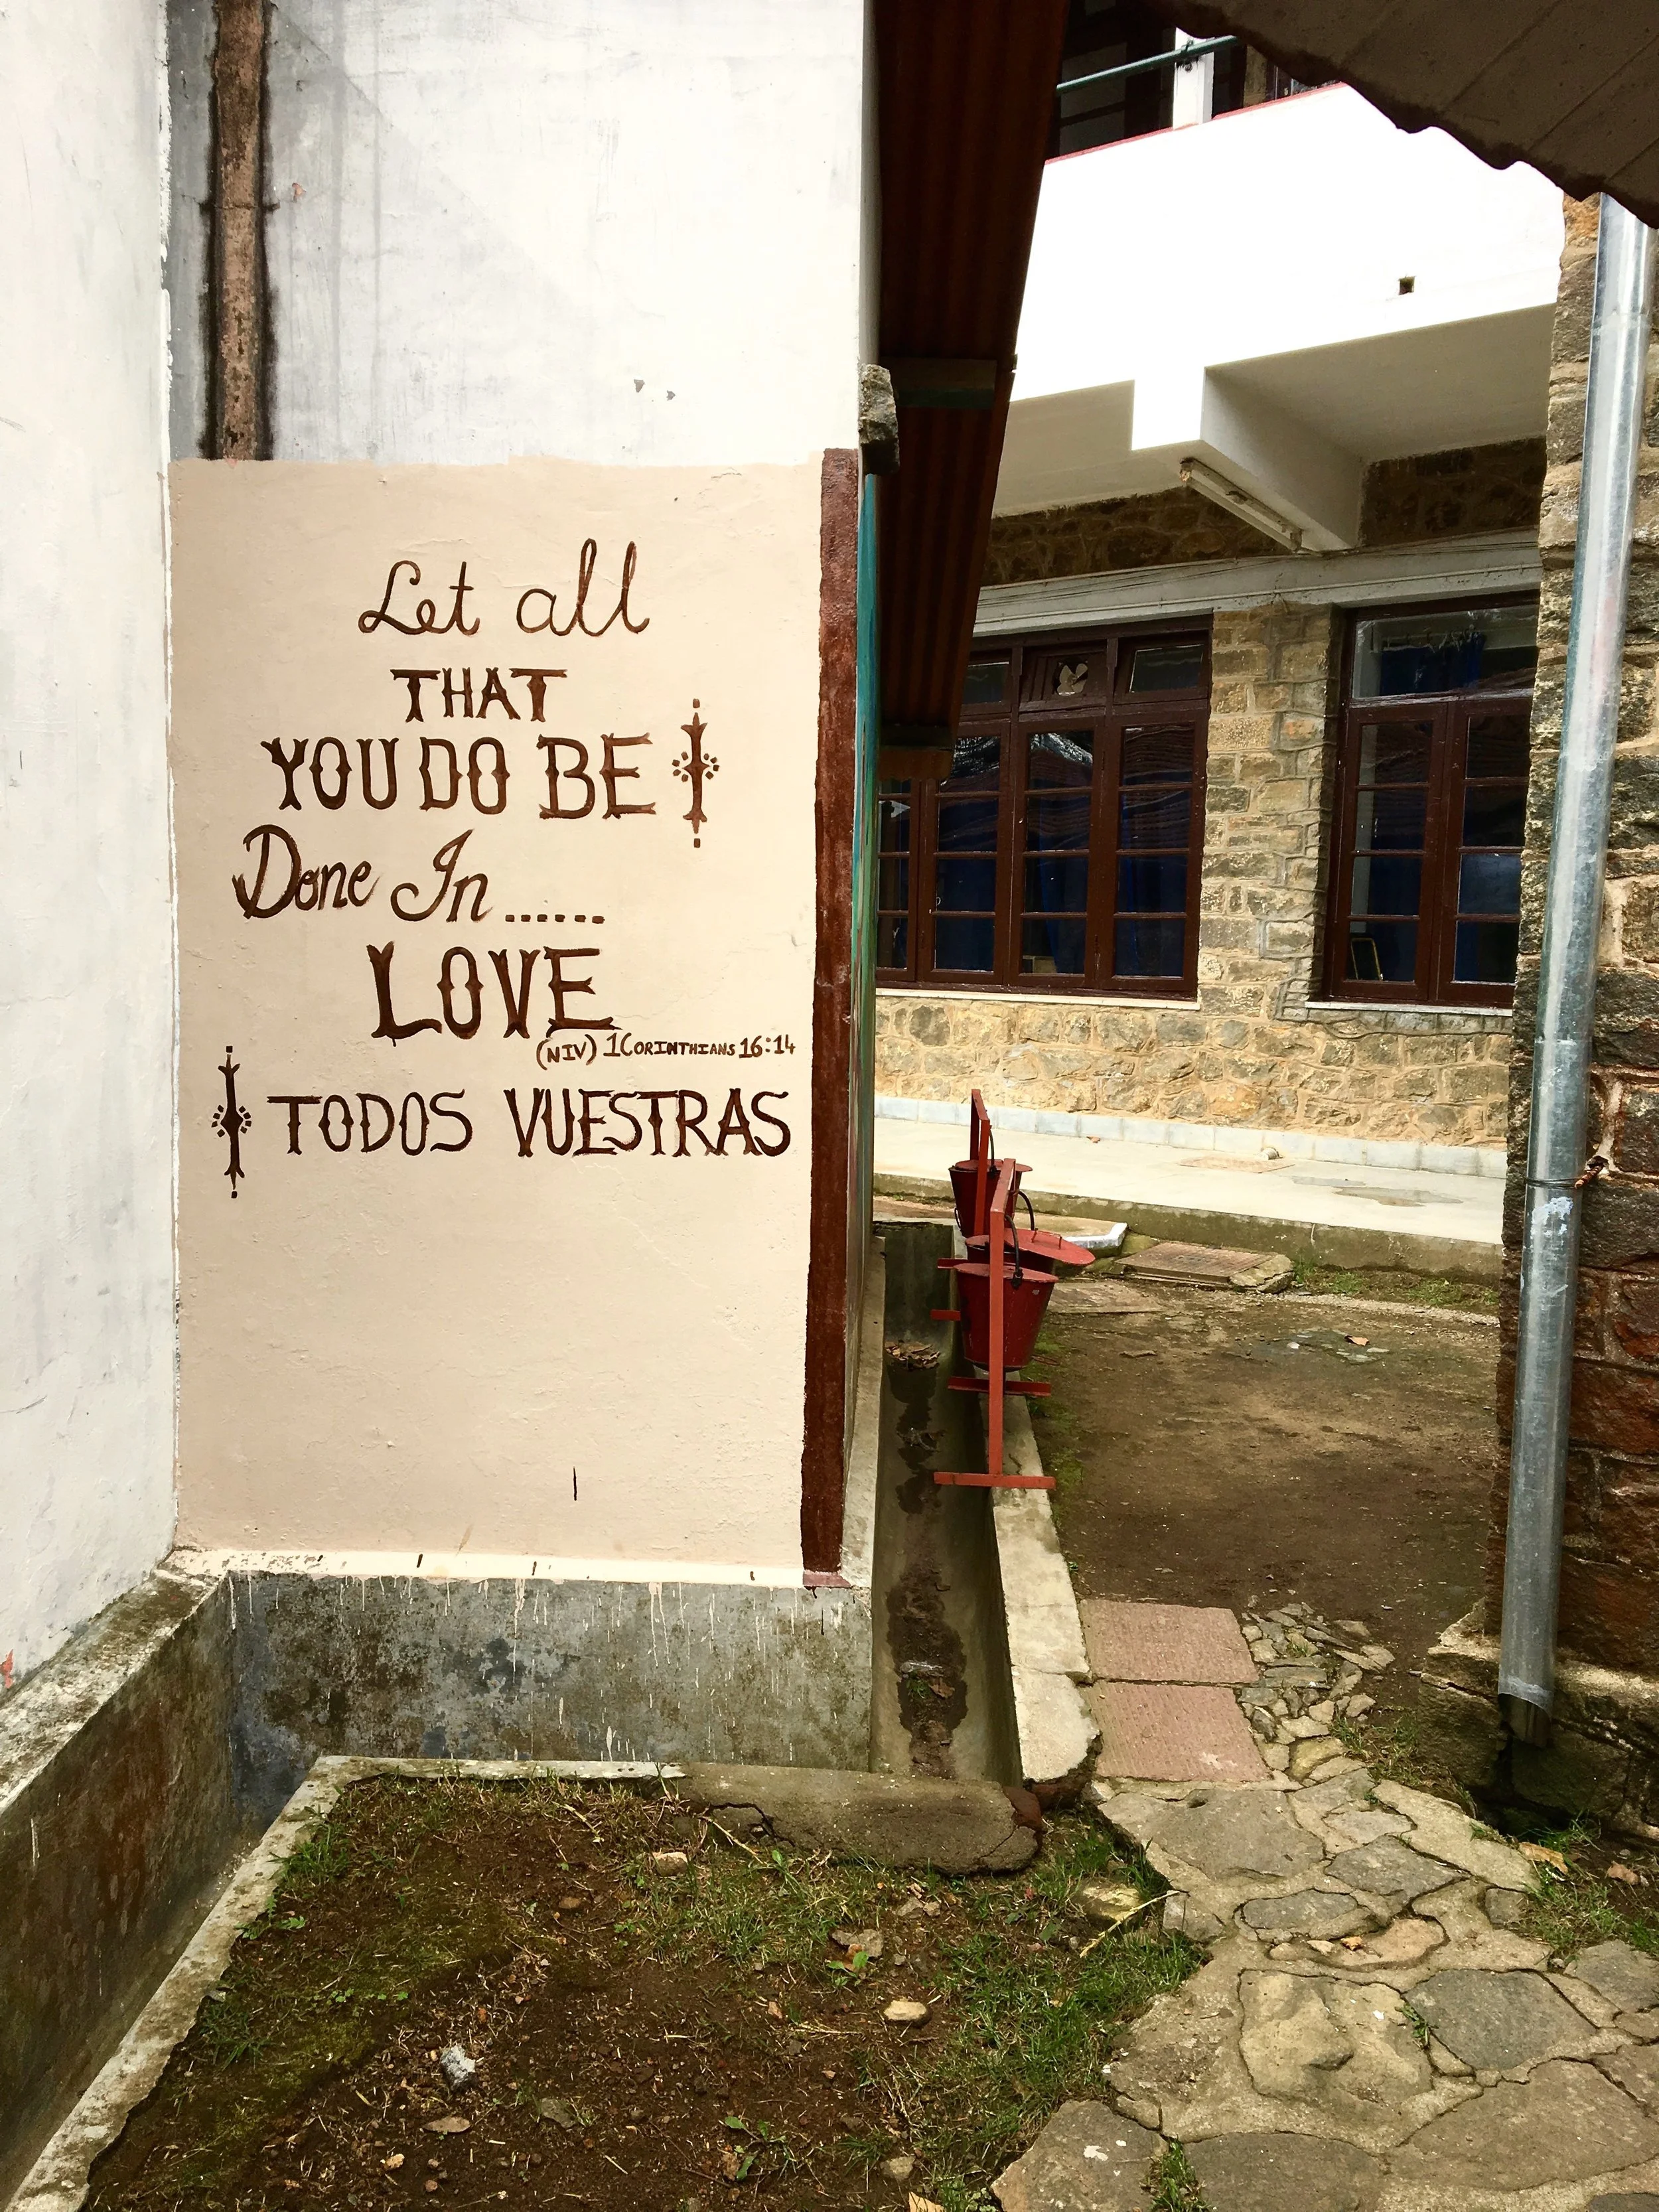 Let all
THAT
YOU DO BE
Done In ......
LOVE
(NIV) 1CORINTHIANS 16:14
TODOS VUESTRAS